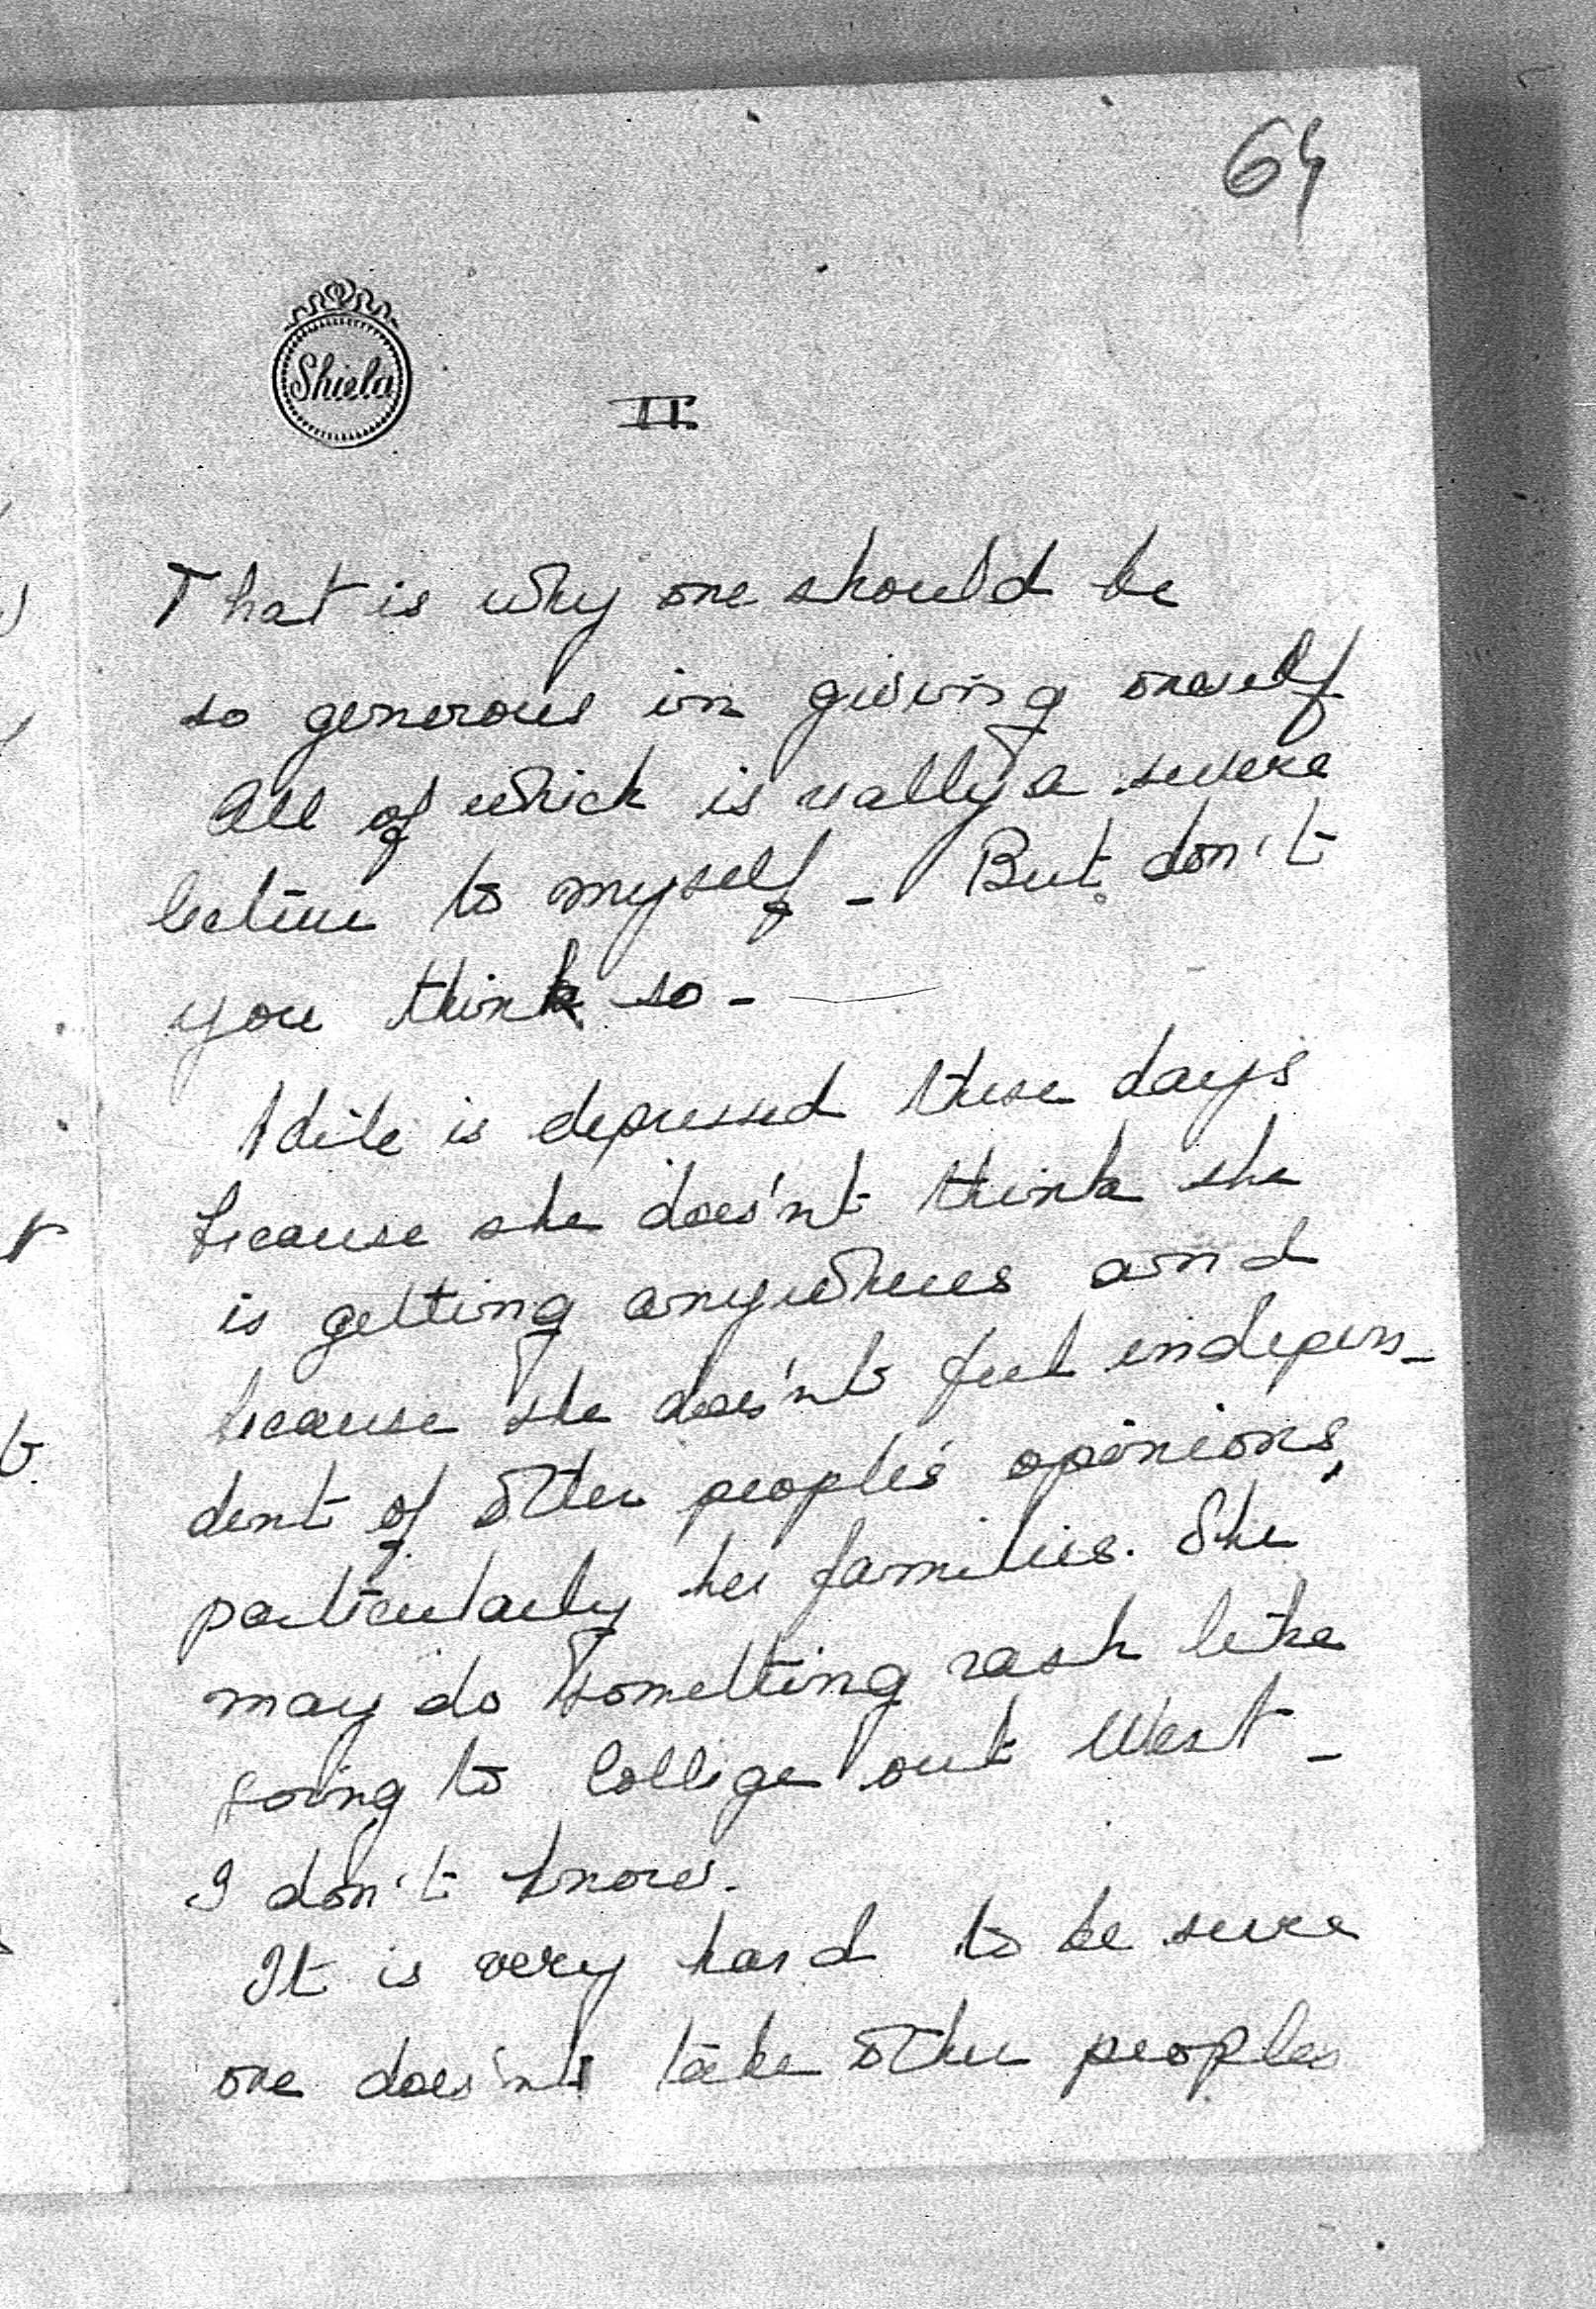 64
Shiela
II.
That is why one should be
so generous in giving oneself
All of which is really a severe
lecture to myself - But don't
you think so -
is depressed these days
because she does'nt think she
is getting anywheres and
because she does'nt feel indepen-
dent of other people's opinions,
particularly her families. She
may do something rash like
going to College out West -
I don't know.
It is very hard to be sure
one does'nt take other peoples